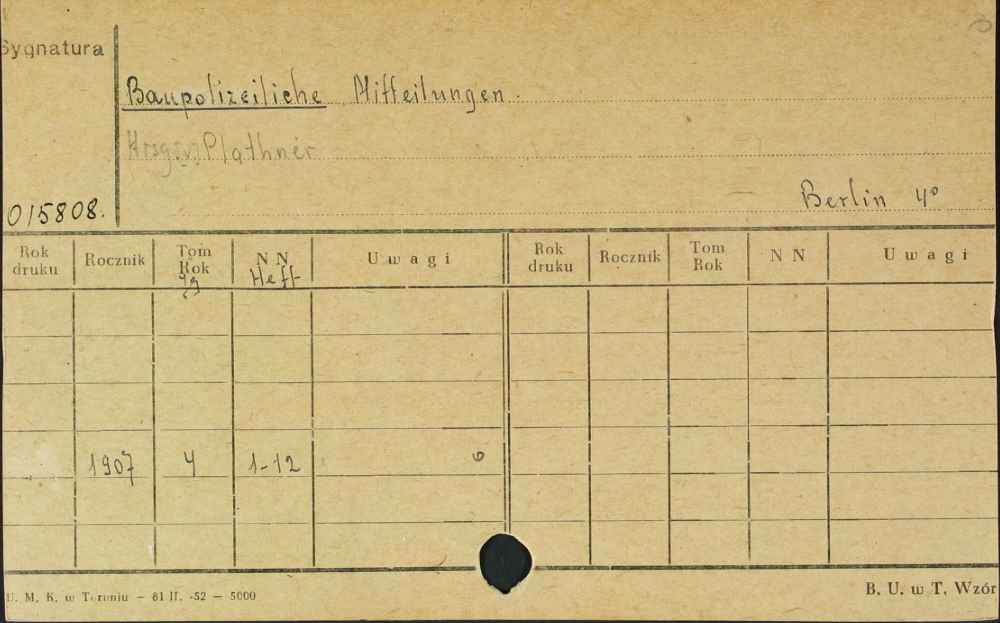 Sygnatura
Baupolizeiliche Mitteilungen.
Hrsg. v. Plathner
015808.
Berlin 4°
Rok druku Rocznik Tom Rok Jg N N Heft U w a g i Rok druku Rocznik Tom Rok N N U w a g i
1907 4 1-12 6
U. M. K. w Toruniu — 81 II. -52 — 5000
B. U. w T. Wzór